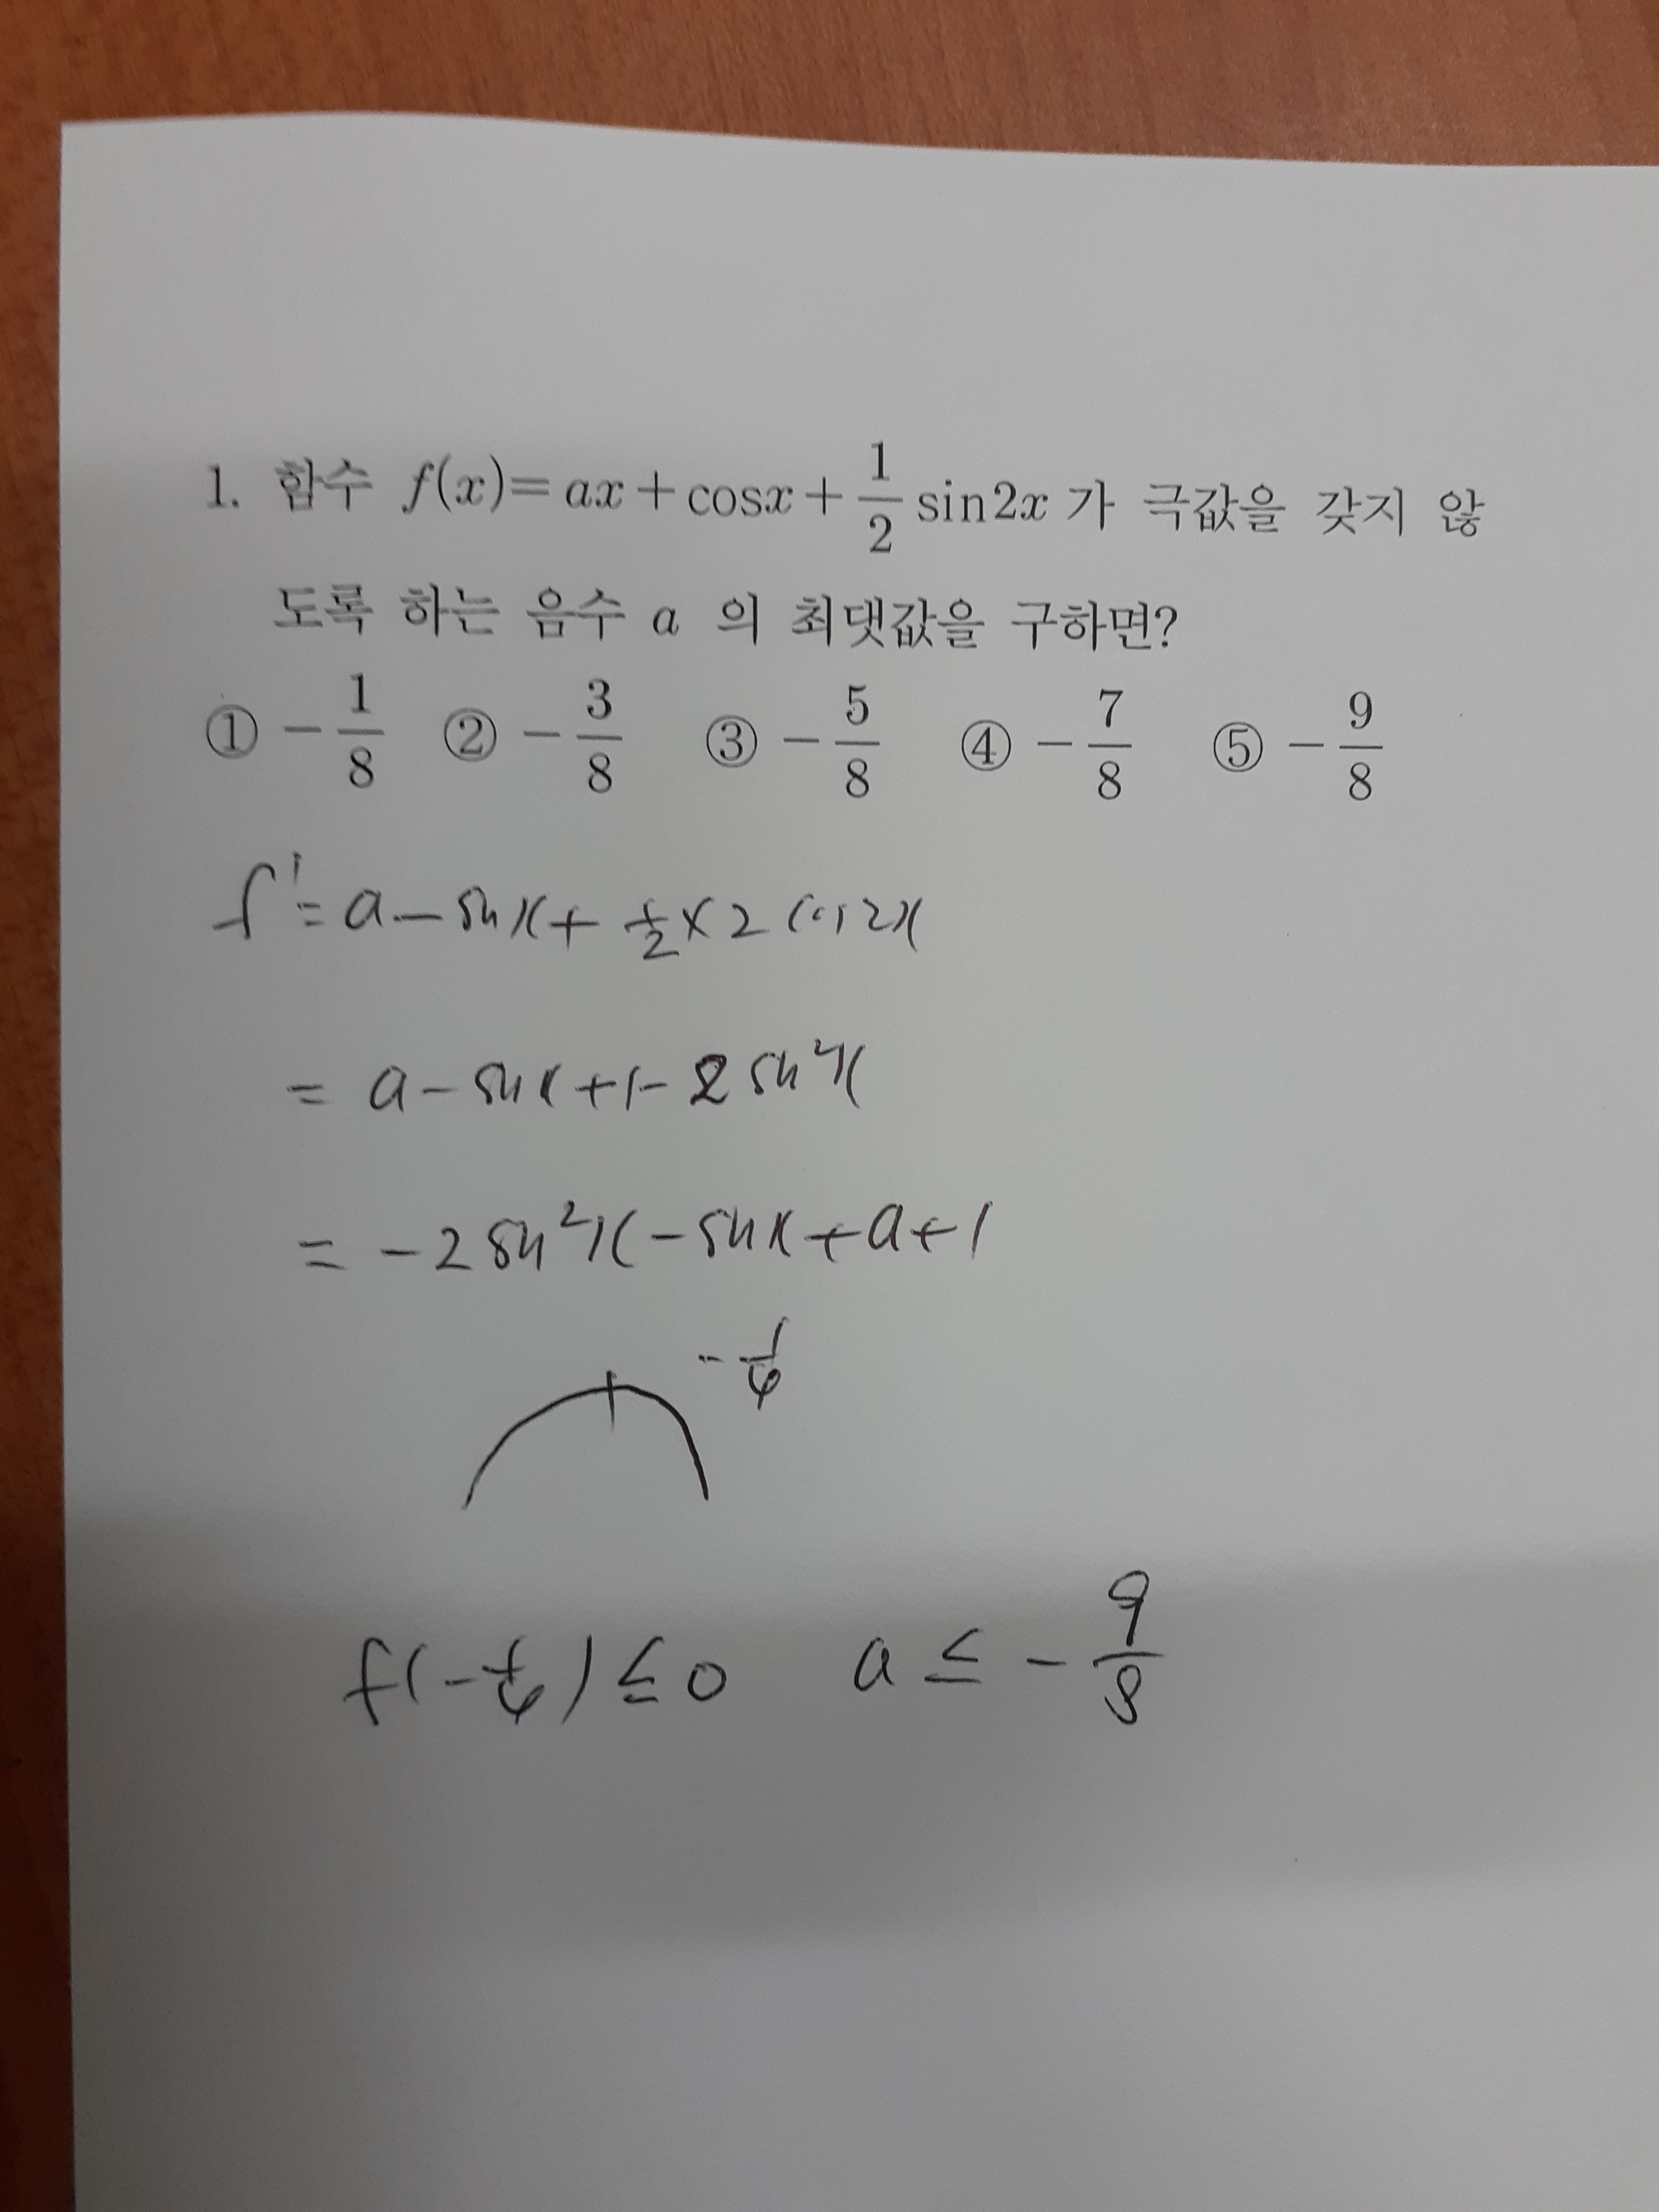 1. 함수 f(x)=ax+cosx+1/2 sin2x 가 극값을 갖지 않
도록 하는 음수 a 의 최댓값을 구하면?
① -1/8 ② -3/8 ③ -5/8 ④ -7/8 ⑤ -9/8
f'=a-sinx+1/2×2cos2x
=a-sinx+1-2sin²x
=-2sin²x-sinx+a+1
-1/4
f(-1/4)≤0 a≤-9/8